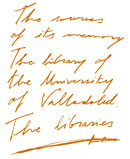 The sources
of its memory
The library of
the University
of Valladolid.
The libraries